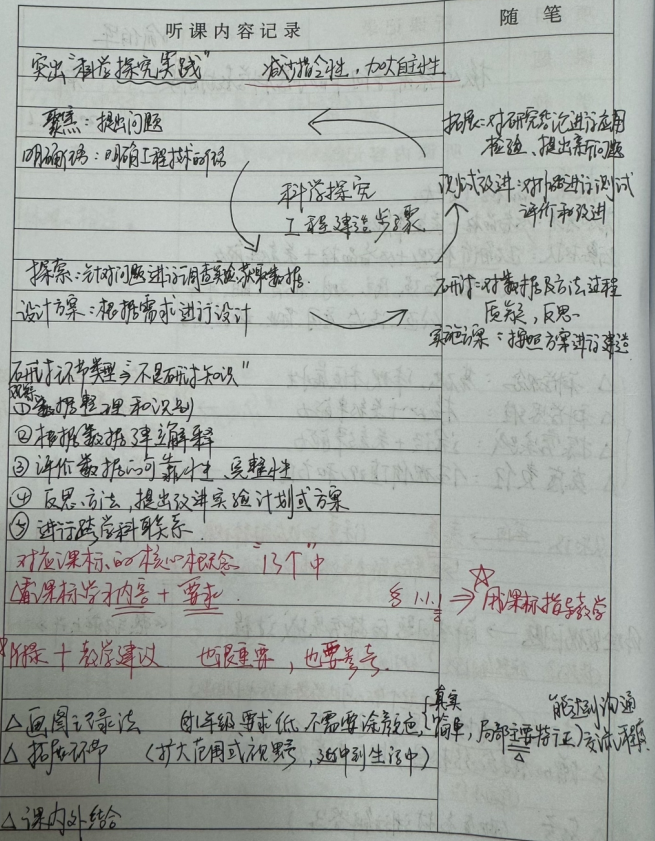 听课内容记录
随笔
突出“科学探究实践” 减少指令性，加大自主性
聚焦：提出问题
明确问题：明确工程技术问题
科学探究
工程建造步骤
拓展：对研究结论进行应用
检验、提出新问题
测试改进：对外部进行测试
评价和改进
探索：针对问题进行调查实验获取数据
设计方案：根据需求进行设计
研讨：对数据及方法过程
质疑，反思
实施方案：按照方案进行建造
研讨环节类型“不是研讨知识”
①数据整理和识别
②根据数据建立解释
③评价数据的可靠性 完整性
④反思方法，提出改进实验计划或方案
⑤进行跨学科联系
对应课标的核心概念“13个”中
看课标学习内容 + 要求
§ 1.1.1 ⇒ ☆用课标指导教学
+ 教学建议 也很重要，也要参考
△画图记录法 低年级要求低，不需要涂颜色，（真实 简单，局部主要特征）能达到沟通交流程度
△拓展环节 （扩大范围或视野，延伸到生活中）
△课内外结合